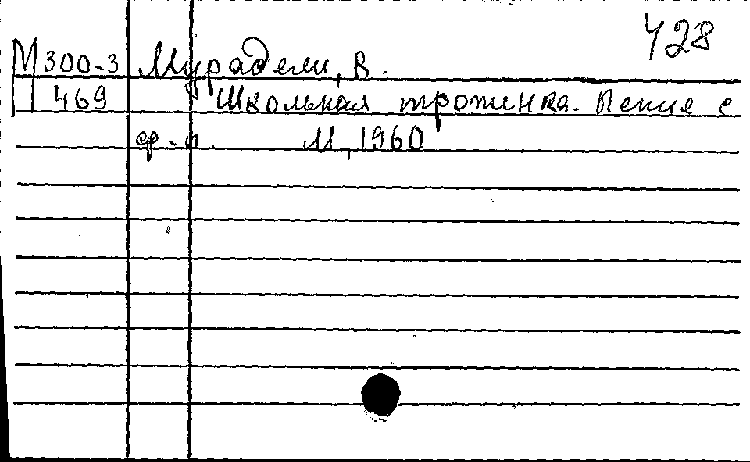 428
М300-3 Мурадели, В.
469 Школьная тропинка. Пение с
ф-п. М, 1960